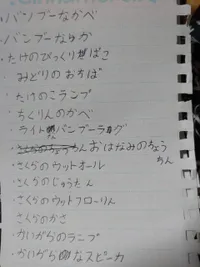 ・バンブーなかべ
・バンブーなゆか
・たけのびっくりばこ
・みどりのおちば
・たけのこランプ
・ちくりんのかべ
・ライトバンブーラグ
・おはなみのちょうちん
・さくらのウットオール
・さくらのじゅうたん
・さくらのウットフローリん
・さくらのかさ
・かいがらのランプ
・かいがらなスピーカ